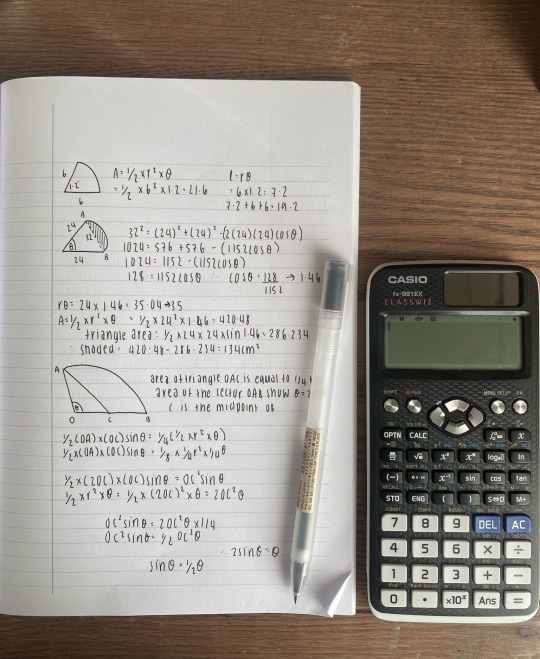 6
1.2
6
A = 1/2 × r² × θ
= 1/2 × 6² × 1.2 = 21.6
l = rθ
= 6 × 1.2 = 7.2
7.2 + 6 + 6 = 19.2
A
24
32
θ
24
B
32² = (24)² + (24)² - (2(24)(24)cosθ)
1024 = 576 + 576 - (1152cosθ)
1024 = 1152 - (1152cosθ)
128 = 1152cosθ ∴ cosθ = 128/1152 → 1.46
rθ = 24 × 1.46 = 35.04 → 35
A = 1/2 × r² × θ = 1/2 × 24² × 1.46 = 420.48
triangle area: 1/2 × 24 × 24 × sin 1.46 = 286.234
∴ shaded = 420.48 - 286.234 = 134cm²
A
θ
O
C
B
area of triangle OAC is equal to 1/4
area of the sector OAB show θ = 2
C is the midpoint OB
1/2(OA) × (OC) sinθ = 1/4(1/2 × r² × θ)
1/2 × (OA) × (OC) sinθ = 1/8
1/2 × (2OC) × (OC) sinθ = OC² sinθ
1/2 × r² × θ = 1/2 × (2OC)² × θ = 2OC²θ
OC² sinθ = 2OC²θ × 1/4
OC² sinθ = 1/2 OC²θ
∴ 2sinθ = θ
sinθ = 1/2θ
CASIO
fx-991EX
CLASSWIZ
SHIFT
ALPHA
MENU SETUP
ON
OPTN
CALC
x
√
log
ln
(-)
sin
cos
tan
STO
ENG
(
)
S⇔D
M+
7 8 9 DEL AC
4 5 6 × ÷
1 2 3 + −
0 . ×10ˣ Ans =